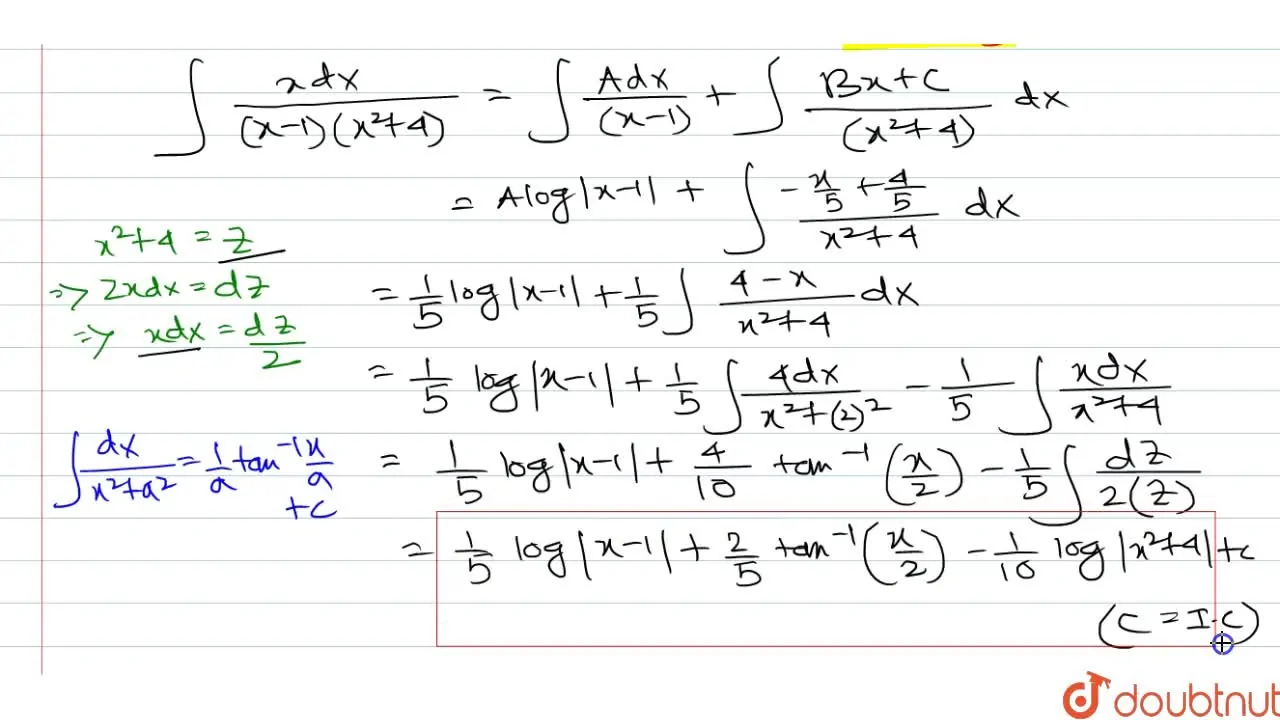 ∫ xdx/((x-1)(x²+4)) = ∫ Adx/(x-1) + ∫ (Bx+C)/(x²+4) dx
= A log|x-1| + ∫ (-x/5 + 4/5)/(x²+4) dx
x²+4 = z
=> 2xdx = dz
=> xdx = dz/2
= 1/5 log|x-1| + 1/5 ∫ (4-x)/(x²+4) dx
= 1/5 log|x-1| + 1/5 ∫ 4dx/(x²+(2)²) - 1/5 ∫ xdx/(x²+4)
∫ dx/(x²+a²) = 1/a tan⁻¹ x/a
+c
= 1/5 log|x-1| + 4/10 tan⁻¹(x/2) - 1/5 ∫ dz/(2(z))
= 1/5 log|x-1| + 2/5 tan⁻¹(x/2) - 1/10 log|x²+4| + c
(C = I.C)
doubtnut